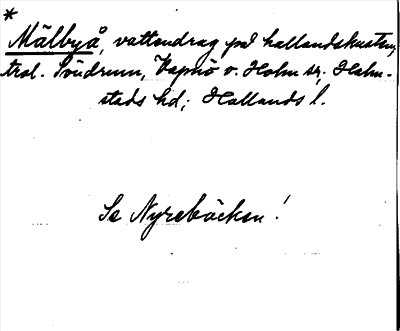 *
Mälbyå, vattendrag på hallandskusten,
trol. Söndrum, Vapnö o. Holm sr; Halm-
stads hd; Hallands l.
Se Nyrebäcken!